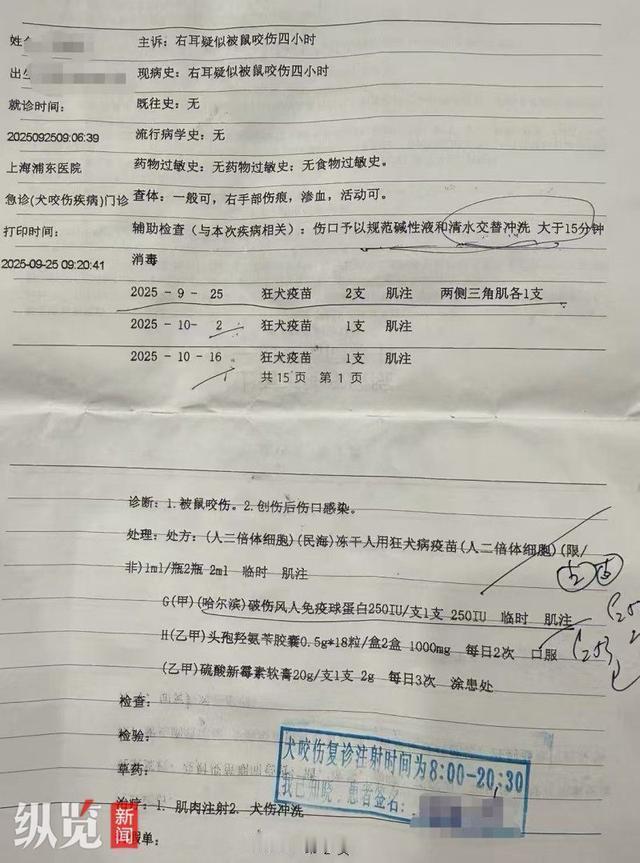 姓
主诉：右耳疑似被鼠咬伤四小时
出生
现病史：右耳疑似被鼠咬伤四小时
就诊时间：
既往史：无
2025092509:06:39
流行病学史：无
上海浦东医院
药物过敏史：无药物过敏史：无食物过敏史。
急诊(犬咬伤疾病)门诊
查体：一般可，右手部伤痕，渗血，活动可。
打印时间：
辅助检查（与本次疾病相关）：伤口予以规范碱性液和清水交替冲洗 大于15分钟
2025-09-25 09:20:41
消毒
2025 - 9 - 25 狂犬疫苗 2支 肌注 两侧三角肌各1支
2025 - 10- 2 狂犬疫苗 1支 肌注
2025 - 10 - 16 狂犬疫苗 1支 肌注
共 15 页 第 1 页
诊断：1.被鼠咬伤。2.创伤后伤口感染。
处理：处方：(人二倍体细胞)(民海)冻干人用狂犬病疫苗(人二倍体细胞)(限/
非)1ml/瓶2瓶 2ml 临时 肌注
G(甲)(哈尔滨)破伤风人免疫球蛋白250IU/支1支 250IU 临时 肌注
H(乙甲)头孢羟氨苄胶囊0.5g*18粒/盒2盒 1000mg 每日2次 口服
(乙甲)硫酸新霉素软膏20g/支1支 2g 每日3次 涂患处
检查：
检验：
草药：
治疗：1. 肌肉注射2. 犬伤冲洗
假单：
犬咬伤复诊注射时间为8:00-20:30
我已知晓，患者签名：
纵览新闻